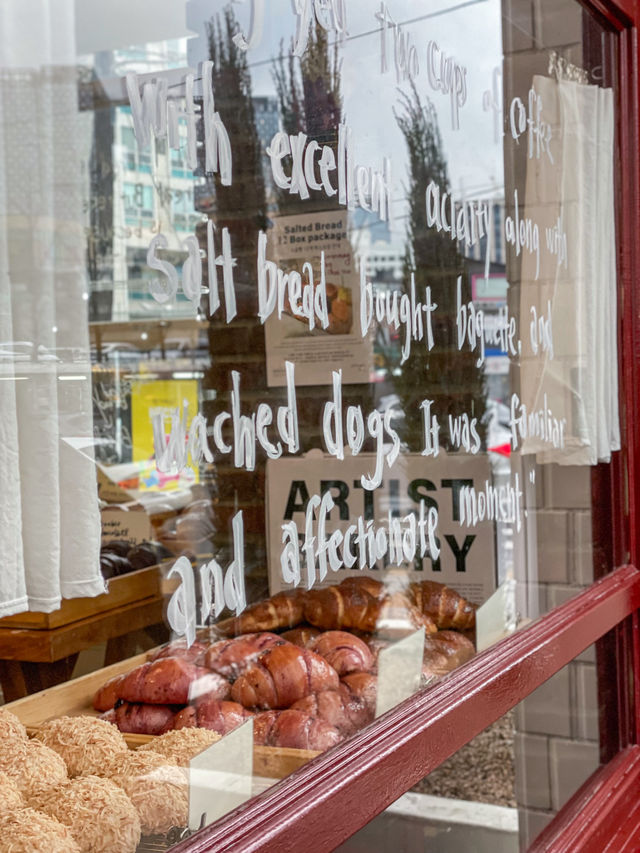 I get two cups of coffee
with excellent acidity along with
salt bread bought baguette, and
wached dogs It was familiar
and affectionate moment."
Salted Bread
Box package
ARTIST
BAKERY